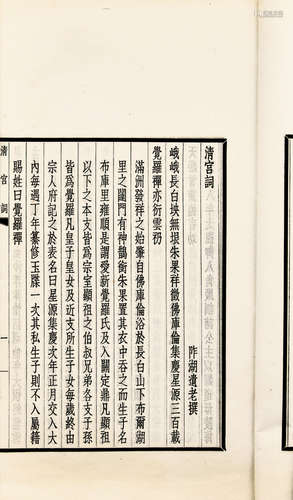 清宮詞
阼湖遺老撰
峨峨長白垬無垠朱果祥徵佛庫倫集慶星源三百載
覺羅禪亦衍雲礽
滿洲發祥之始肇自佛庫倫浴於長白山下布爾湖
里之闥門有神鵲銜朱果置其衣中吞之而生子名
布庫里雍順是謂愛新覺羅氏及入關定鼎凡顯祖
以下之本支皆爲宗室顯祖之伯叔兄弟各支子孫
皆爲覺羅凡皇子皇女及近支所生子女每歲終由
宗人府記之於表名曰星源集慶次年正月交入大
內每過丁年纂修玉牒一次其私生子則不入屬籍
賜姓曰覺羅禪
清宮詞
一